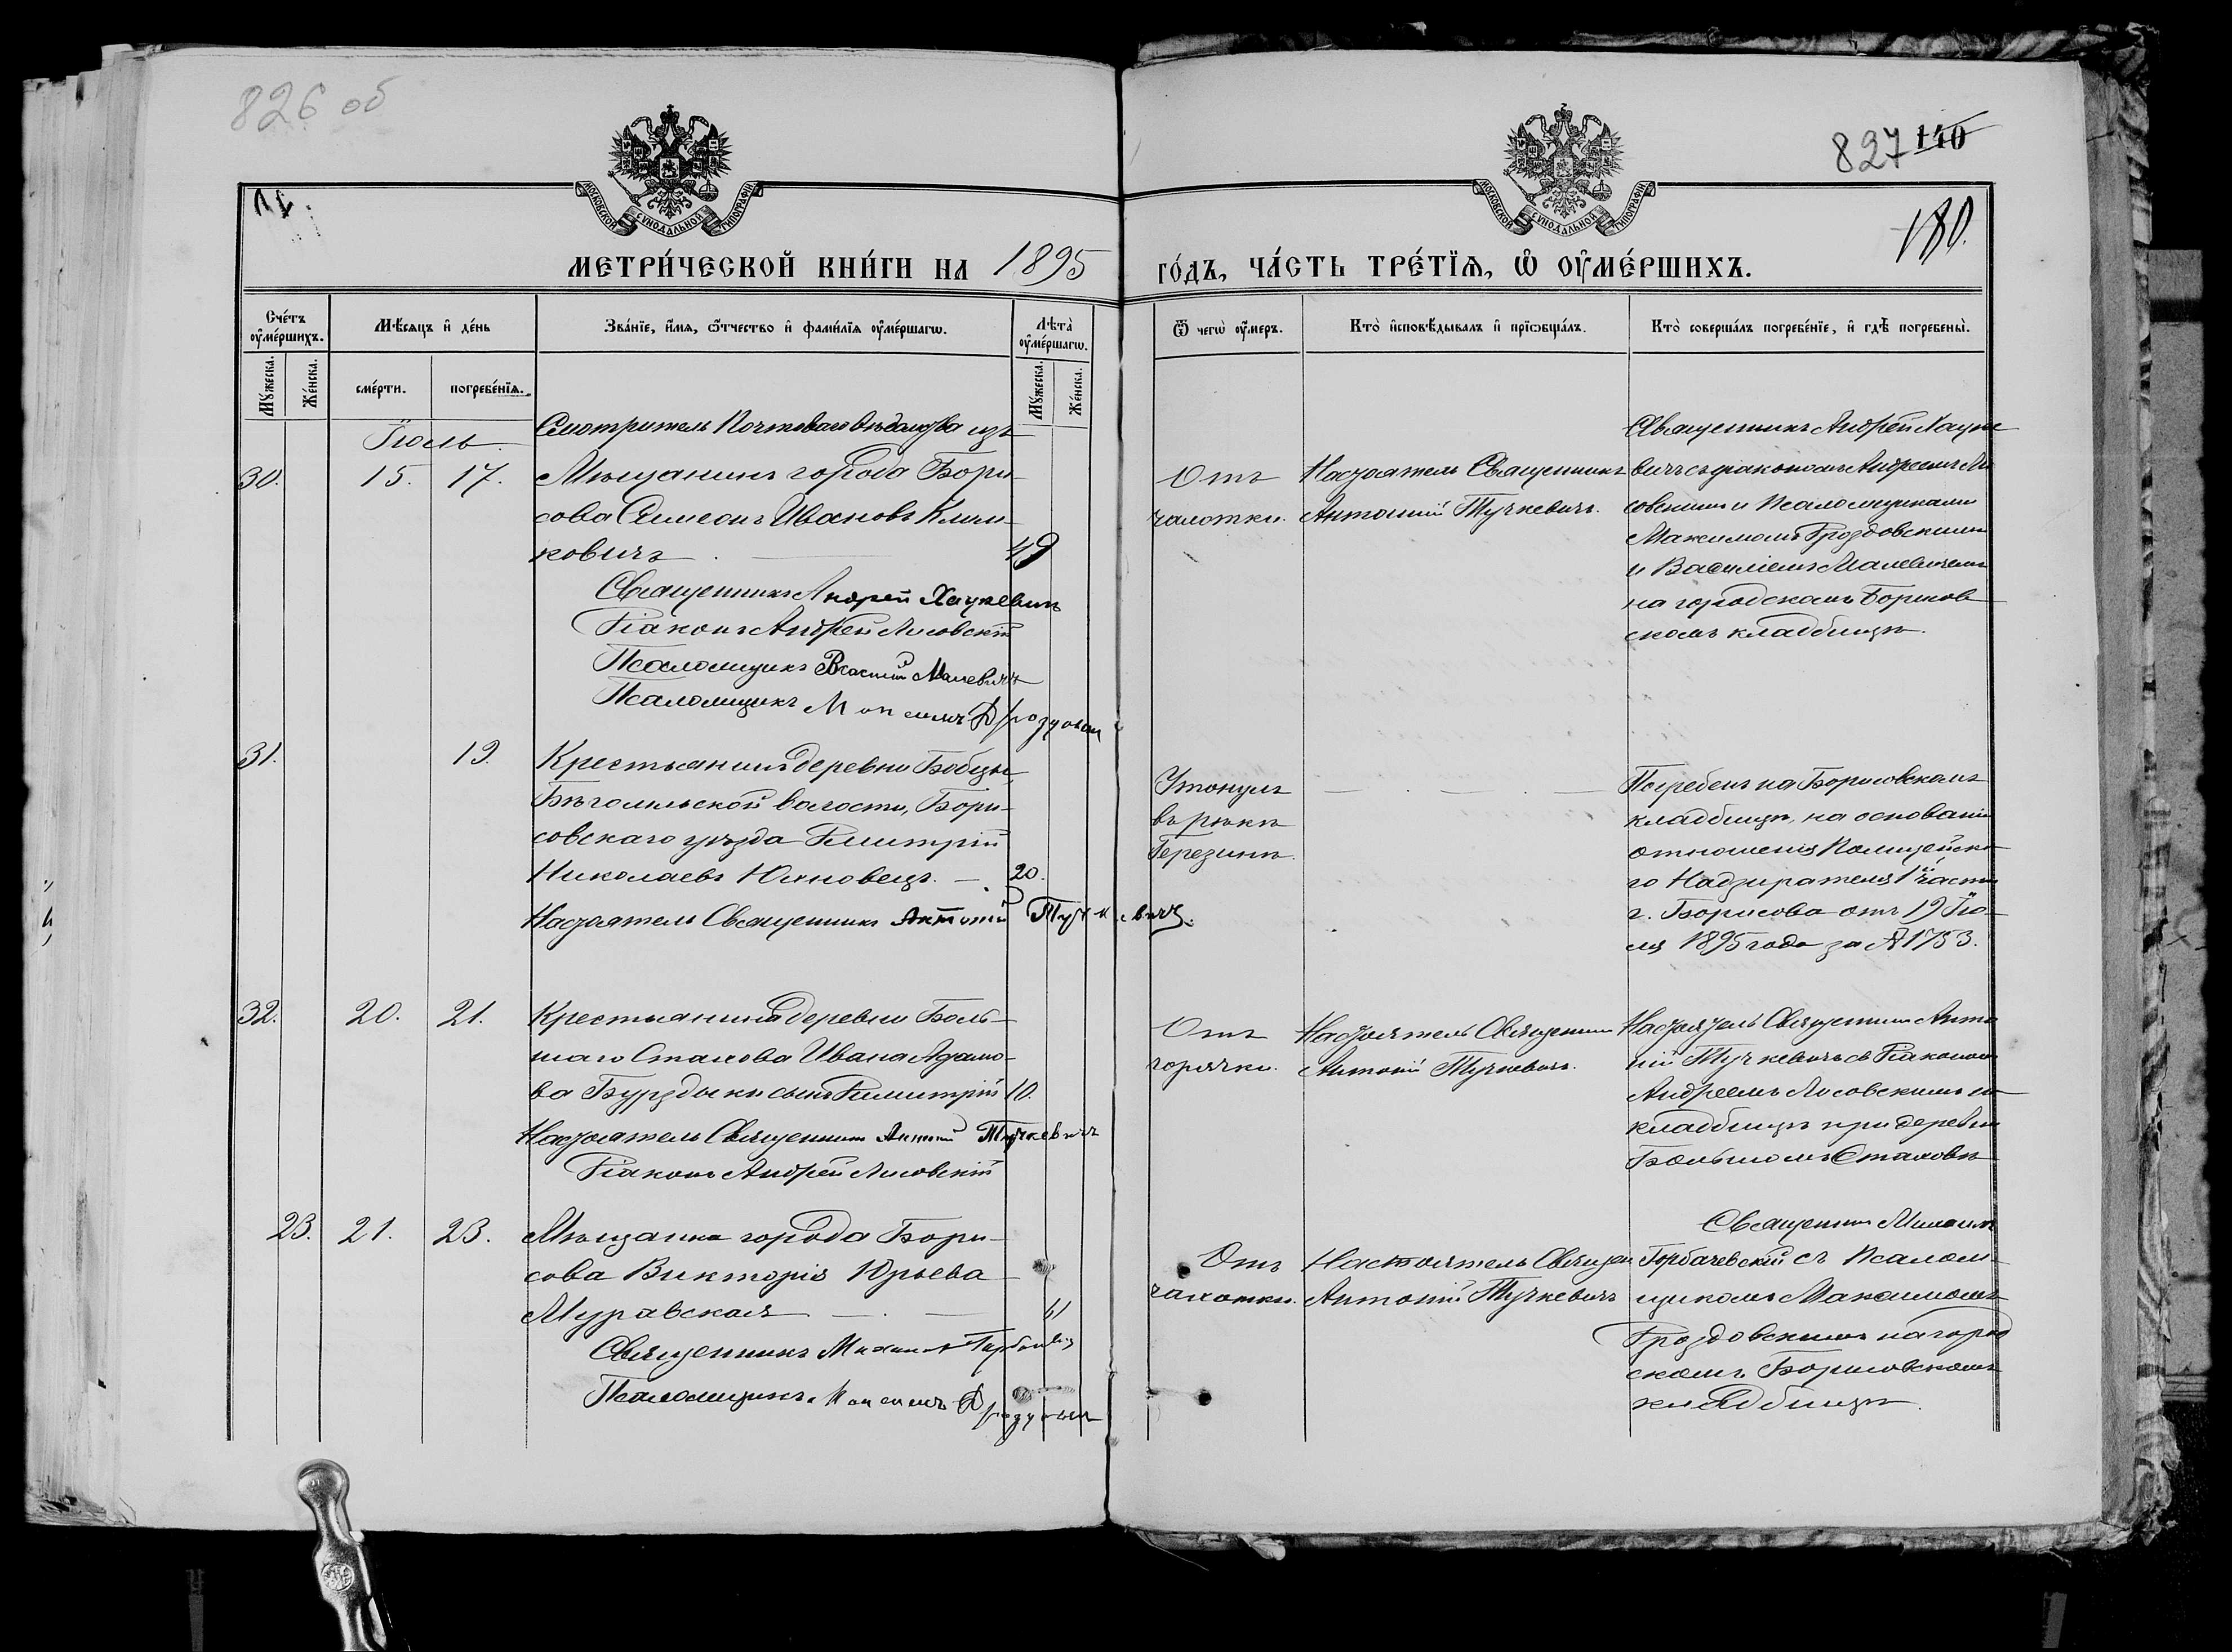 826 об
827 140
180.
МОСКОВСКОЙ СѴНОДАЛЬНОЙ ТИПОГРАФІИ
МОСКОВСКОЙ СѴНОДАЛЬНОЙ ТИПОГРАФІИ
МЕТРИ́ЧЕСКОЙ КНИ́ГИ НА 1895
ГО́ДЪ, ЧА́СТЬ ТРЕ́ТЇѦ, Ѡ҆ ОУ҆МЕ́РШИХЪ.
Сче́тъ оу҆ме́ршихъ.
Мꙋ́жеска.
Же́нска.
Мѣ́сяцъ и҆ де́нь
сме́рти.
погребе́нїѧ.
Зва́нїе, и҆́мѧ, ѻ҆́тчество и҆ фами́лїѧ оу҆ме́ршагѡ.
Лѣта̀ оу҆ме́ршагѡ.
Мꙋ́жеска.
Же́нска.
Ѿ чегѡ̀ оу҆́меръ.
Кто̀ и҆сповѣ́дывалъ и҆ прїѡбща́лъ.
Кто̀ соверша́лъ погребе́нїе, и҆ гдѣ̀ погребены̀.
Іюль
30.
15.
17.
Смотритель Почтоваго Вѣдомства изъ
Мѣщанинъ города Бори-
сова Симеонъ Ивановъ Клим-
ковичъ
49
Священникъ Андрей Хауцевичъ
Діаконъ Андрей Лисовскій
Псаломщикъ Василій Малевичъ
Псаломщикъ Максимъ Дроздовскій
Отъ
чахотки.
Настоятель Священникъ
Антоній Тучкевичъ.
Священникъ Андрей Хауце
вичъ съ діакономъ Андреемъ Ли
совскимъ и Псаломщиками
Максимомъ Дроздовскимъ
и Василіемъ Малевичемъ
на городскомъ Борисов
скомъ кладбищѣ.
31.
19.
Крестьянинъ деревни Бобцы
Бѣгомльской волости, Бори-
совскаго уѣзда Димитрій
Николаевъ Юхновецъ.
20.
Настоятель Священникъ Антоній Тучкевичъ.
Утонулъ
въ рѣкѣ
Березинѣ.
Погребенъ на Борисовскомъ
кладбищѣ, на основаніи
отношенія Полицейска
го Надзирателя 1й части
г. Борисова отъ 19 Ію-
ля 1895 года за № 1753.
32.
20.
21.
Крестьянина деревни Боль-
шаго Стахова Ивана Адамо-
ва Бурздыки сынъ Димитрій
10.
Настоятель Священникъ Антоній Тучкевичъ
Діаконъ Андрей Лисовскій
Отъ
горячки.
Настоятель Священникъ
Антоній Тучкевичъ.
Настоятель Священникъ Анто
ній Тучкевичъ съ Діакономъ
Андреемъ Лисовскимъ на
кладбищѣ при деревнѣ
Большомъ Стаховѣ
23.
21.
23.
Мѣщанка города Бори-
сова Викторія Юрьева
Муравская
61
Священникъ Михаилъ Горбачевскій
Псаломщикъ Максимъ Дроздовскій
Отъ
чахотки.
Настоятель Священ
Антоній Тучкевичъ
Священникъ Михаилъ
Горбачевскій съ Псалом-
щикомъ Максимомъ
Дроздовскимъ на город
скомъ Борисовскомъ
кладбищѣ.